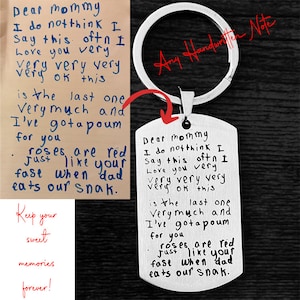 Dear mommy
I do not hink I
say this oftn I
Love you very
very very very
very ok this
is the last one
very much and
I've got a poum
for you
roses are red
Just like your
fase when dad
eats our snak.
Any Handwritten Note
Dear mommy
I do not hink I
say this oftn I
Love you very
very very very
very ok this
is the last one
very much and
I've got a poum
for you
roses are red
Just like your
fase when dad
eats our snak.
Keep your
sweet
memories
forever!